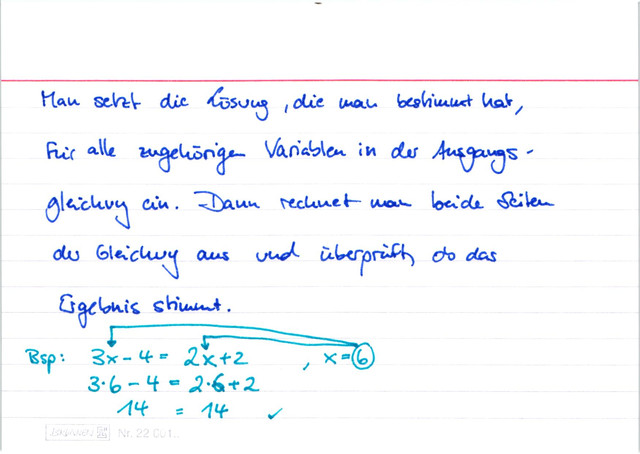 Man setzt die Lösung, die man bestimmt hat,
für alle zugehörigen Variablen in der Ausgangs-
gleichung ein. Dann rechnet man beide Seiten
der Gleichung aus und überprüft, ob das
Ergebnis stimmt.
Bsp: 3x - 4 = 2x + 2 , x = 6
3·6 - 4 = 2·6 + 2
14 = 14 ✓
Nr. 22 601